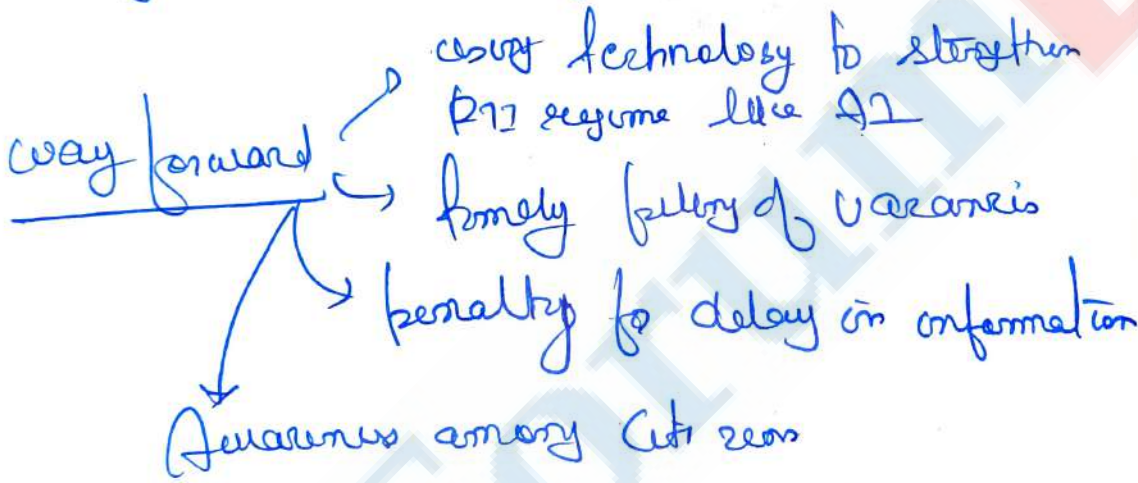 using technology to strengthen
RTI regime like AI
way forward
timely filling of vacancies
penalty for delay in information
Awareness among Citizens
forum